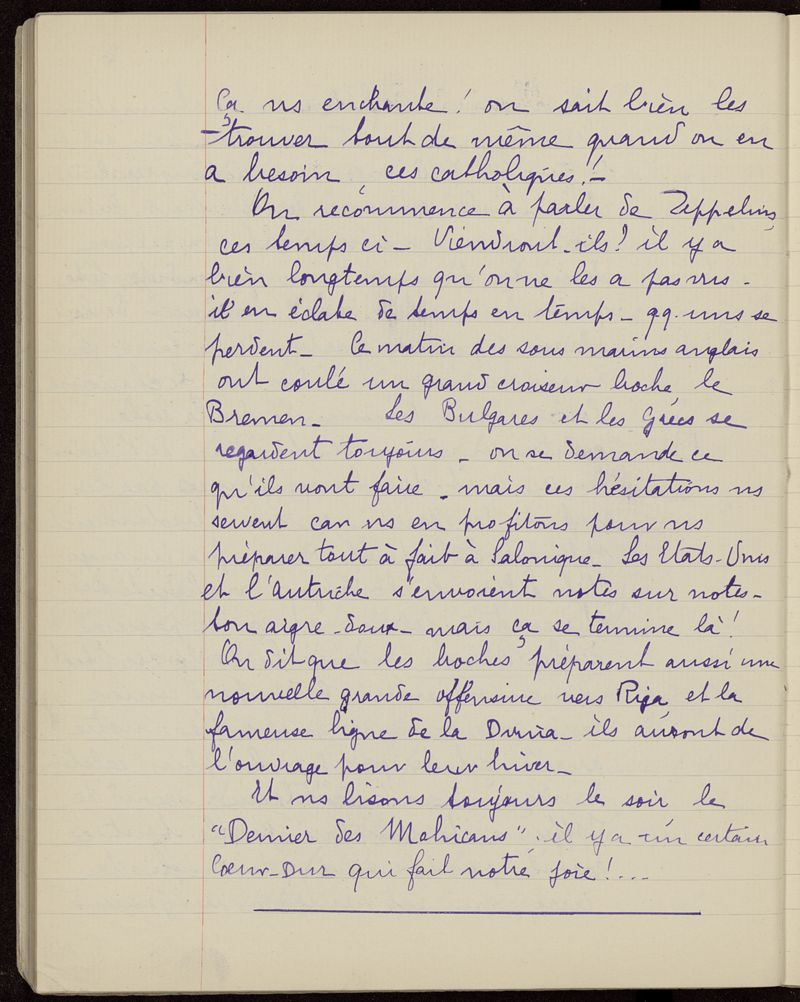 Ça ns enchante ! on sait bien les
trouver tout de même quand on en
a besoin ces catholiques ! –
On recommence à parler de Zeppelins
ces temps ci – Viendront-ils ? il y a
bien longtemps qu'on ne les a pas vus –
il en éclate de temps en temps – qq. uns se
perdent – Ce matin des sous marins anglais
ont coulé un grand croiseur boche le
Bremen – Les Bulgares et les Grecs se
regardent toujours – on se demande ce
qu'ils vont faire – mais ces hésitations ns
servent car ns en profitons pour ns
préparer tout à fait à Salonique – Les Etats-Unis
et l'Autriche s'envoient notes sur notes –
ton aigre-doux – mais ça se termine là !
On dit que les boches préparent aussi une
nouvelle grande offensive vers Riga et la
fameuse ligne de la Dwina – ils auront de
l'ouvrage pour leur hiver –
Et ns lisons toujours le soir le
"Dernier des Mohicans" . il y a un certain
Cœur-Dur qui fait notre joie ! ...